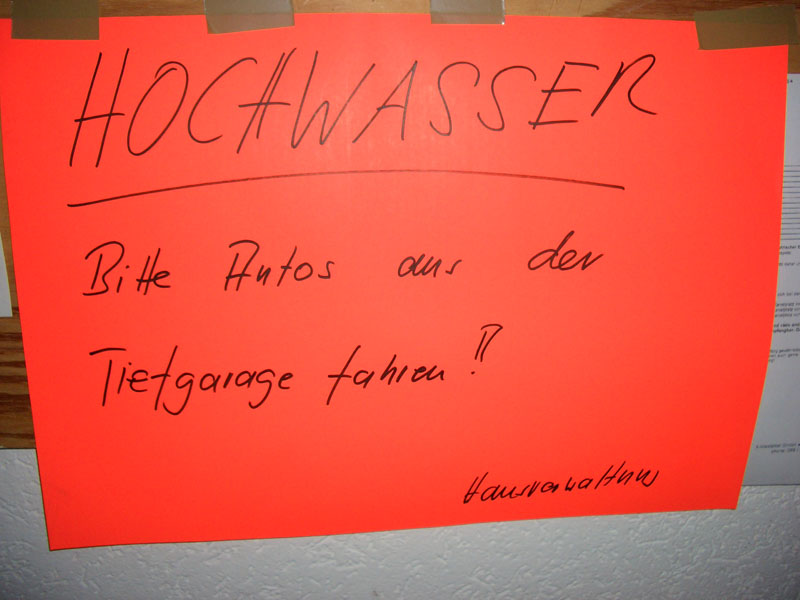 HOCHWASSER
Bitte Autos aus der
Tiefgarage fahren!!
Hausverwaltung